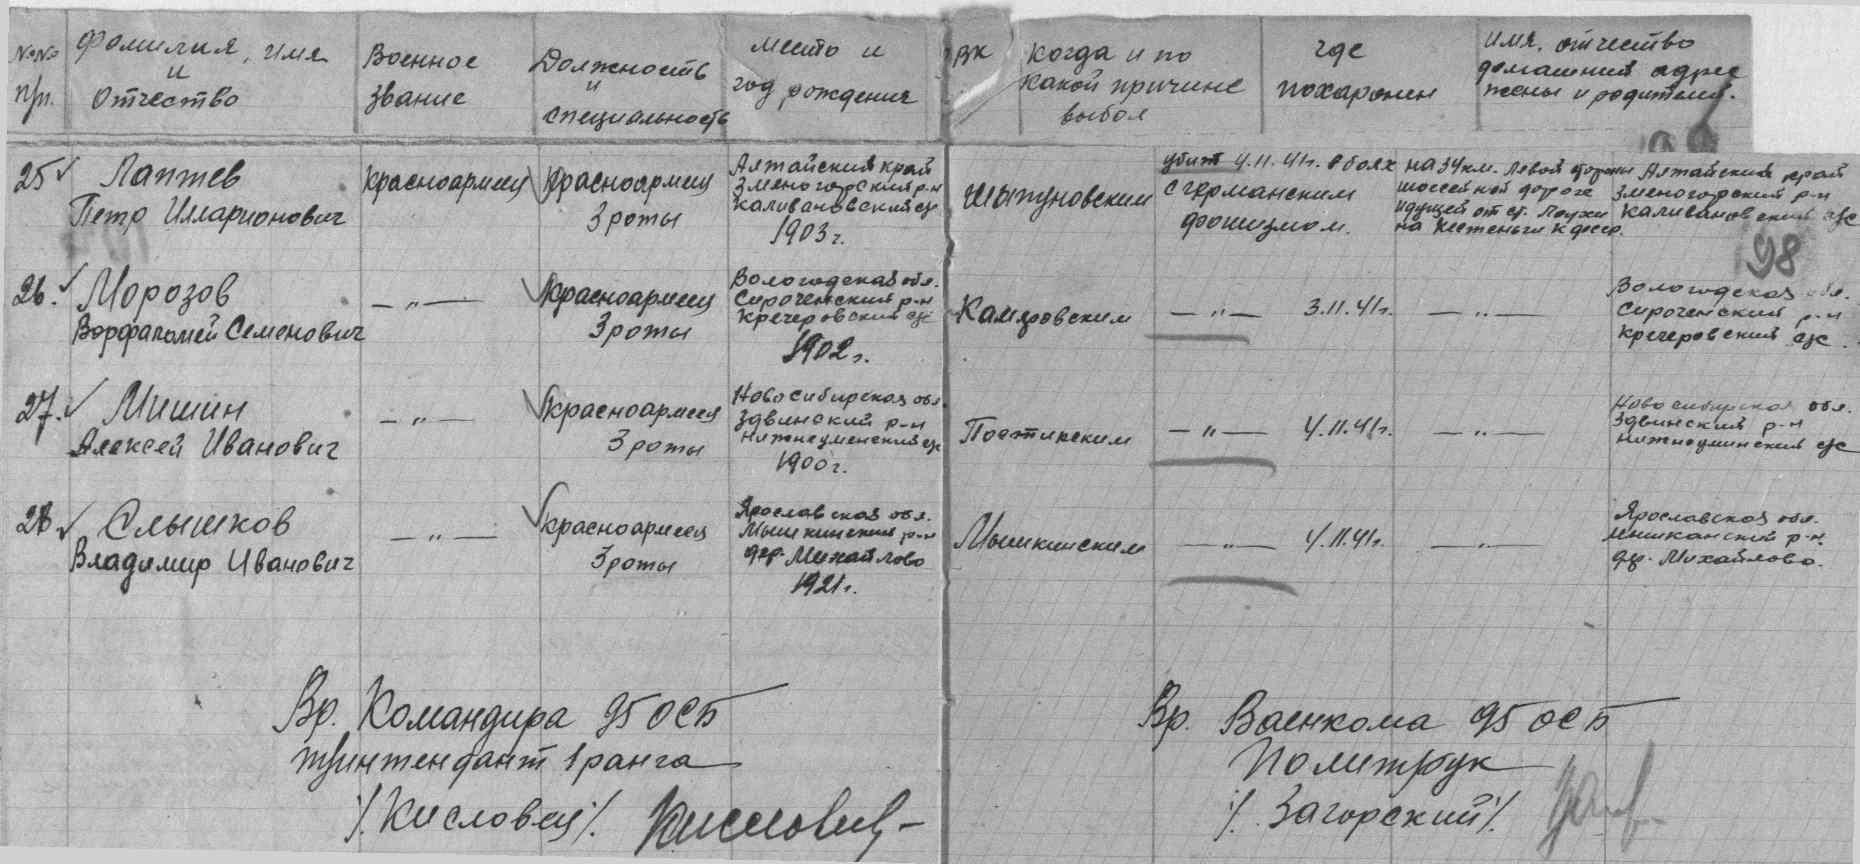 №№ п/п.
Фамилия, имя
и
Отчество
Военное
звание
Должность
и
специальность
место и
год рождения
РВК
когда и по
какой причине
выбыл
где
похоронен
имя, отчество
домашний адрес
жены и родителей.
25
Лаптев
Петр Илларионович
Красноармеец
Красноармеец
3 роты
Алтайский край
Змеиногорский р-н
Каливановский с/с
1903 г.
Шыпуновским
убит 4.11.41г. в боях
с германским
фошизмом.
на 34 км. левой стороны
шоссейной дороге
идущей от ст. Лоухи
на Кестеньги К фсср.
Алтайский край
Змеиногорский р-н
Каливановский с/с
98
26.
Морозов
Ворфаломей Семенович
— „ —
Красноармеец
3 роты
Вологодская обл.
Сироченский р-н
Кречеровский с/с
1902 г.
— „ — 3.11.41г.
— „ —
Вологодская обл.
Сироченский р-н
Кречеровский с/с
27.
Мишин
Алексей Иванович
— „ —
красноармеец
3 роты
Новосибирская обл.
Здвинский р-н
1900 г.
— „ — 4.11.41г.
— „ —
Новосибирская обл.
Здвинский р-н
28
Слышков
Владимир Иванович
— „ —
красноармеец
3 роты
Ярославская обл.
Мышкинский р-н
дер. Михайлово
1921 г.
Мышкинским
— „ — 4.11.41г.
— „ —
Ярославская обл.
мышканский р-н.
др. Михайлово.
Вр. Командира 95 ОСБ
т/интендант 1 ранга
/. Кисловец ./.
Кисловец
Вр. Военкома 95 ОСБ
Политрук
/. Загорский /.